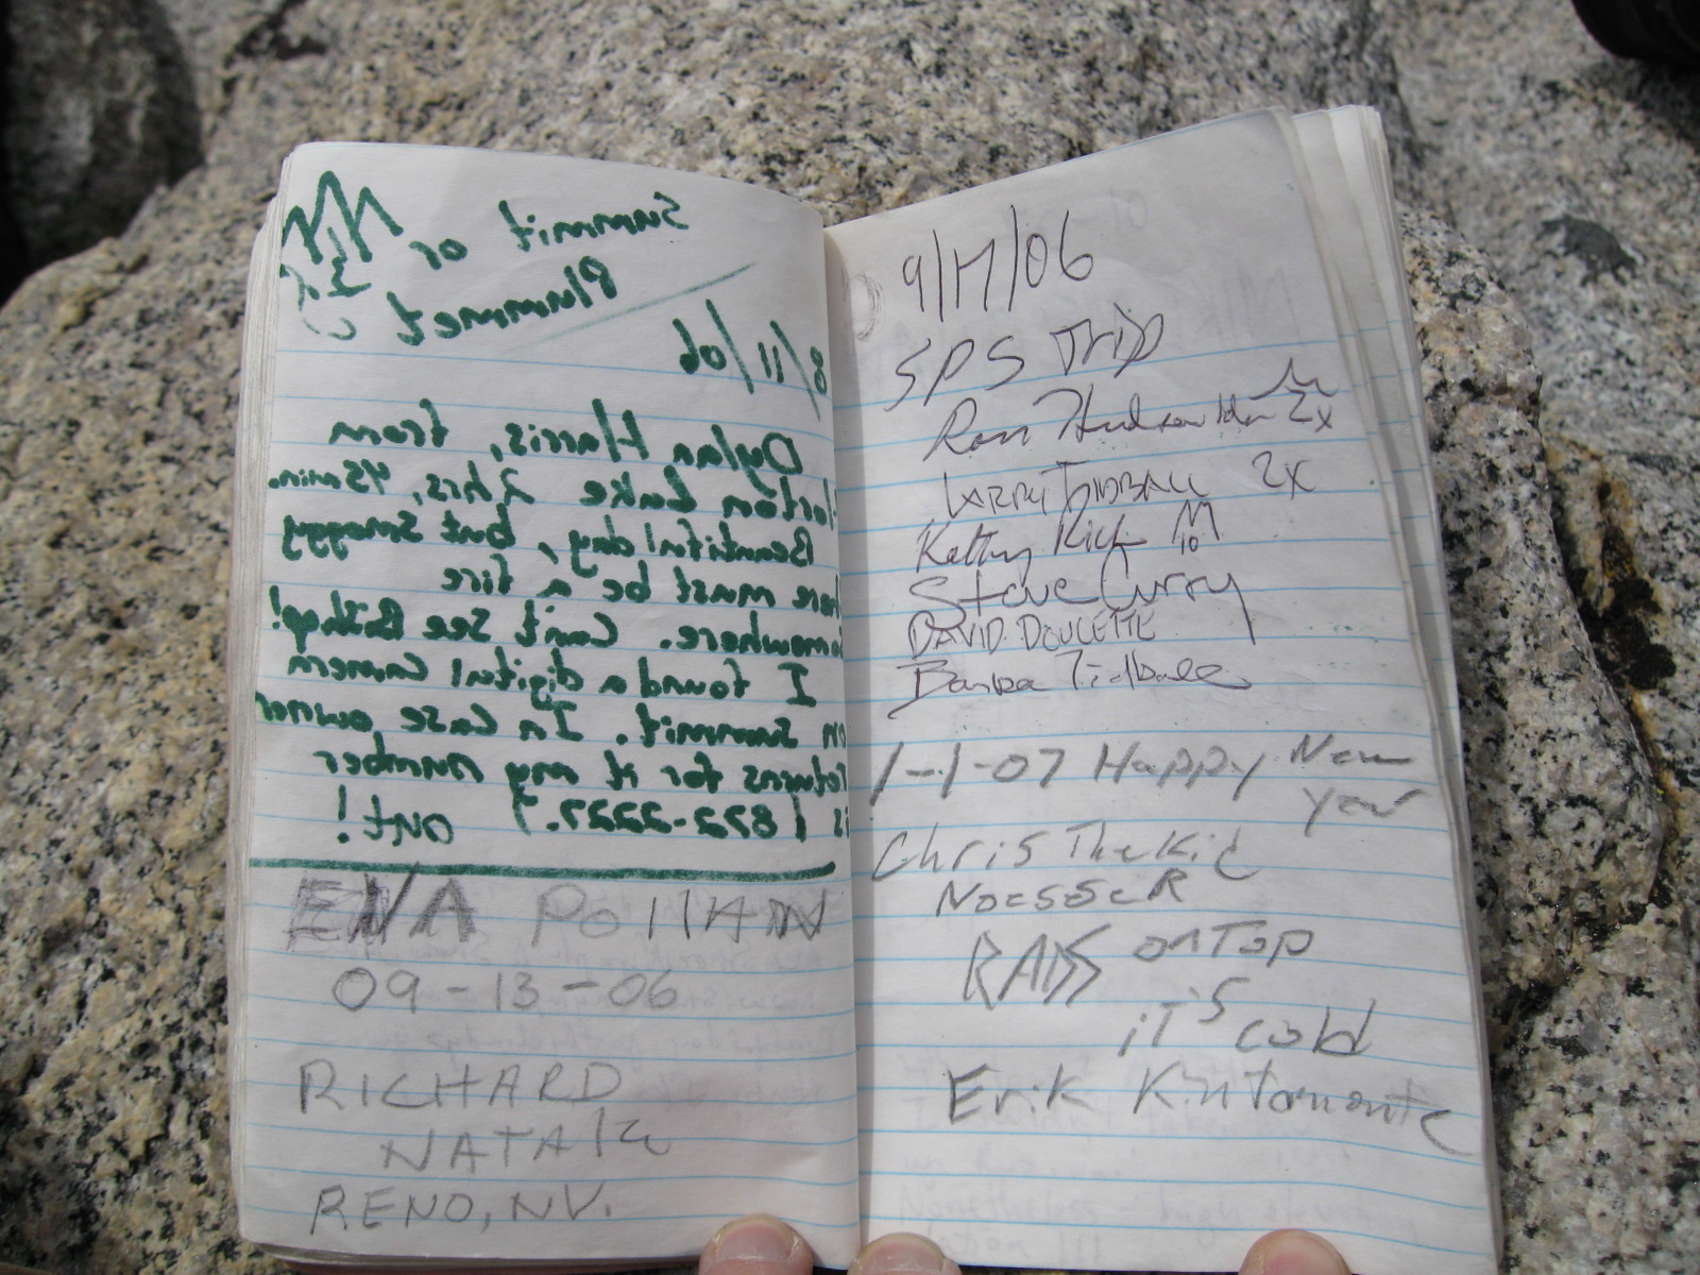 Summit or
Plummet
8/11/06
Dylan Harris, from
Horton Lake 2hrs, 45min.
Beautiful day, but smoggy
there must be a fire
somewhere. Can't see Bishop!
I found a digital camera
on summit. In case owner
returns for it my number
is (872-2227.) out!
EVA POllAN
09-13-06
RICHARD
NATAle
RENO, NV.
9/17/06
SPS Trip
Ron Hudson ldr 2x
LARRY TIDBALL 2X
Kathy Rich M
10
Steve Curry
DAVID DOUCETTE
Barbee Tidball
1-1-07 Happy New
year
Chris The Kid
RADS on Top
it's cold
Erik